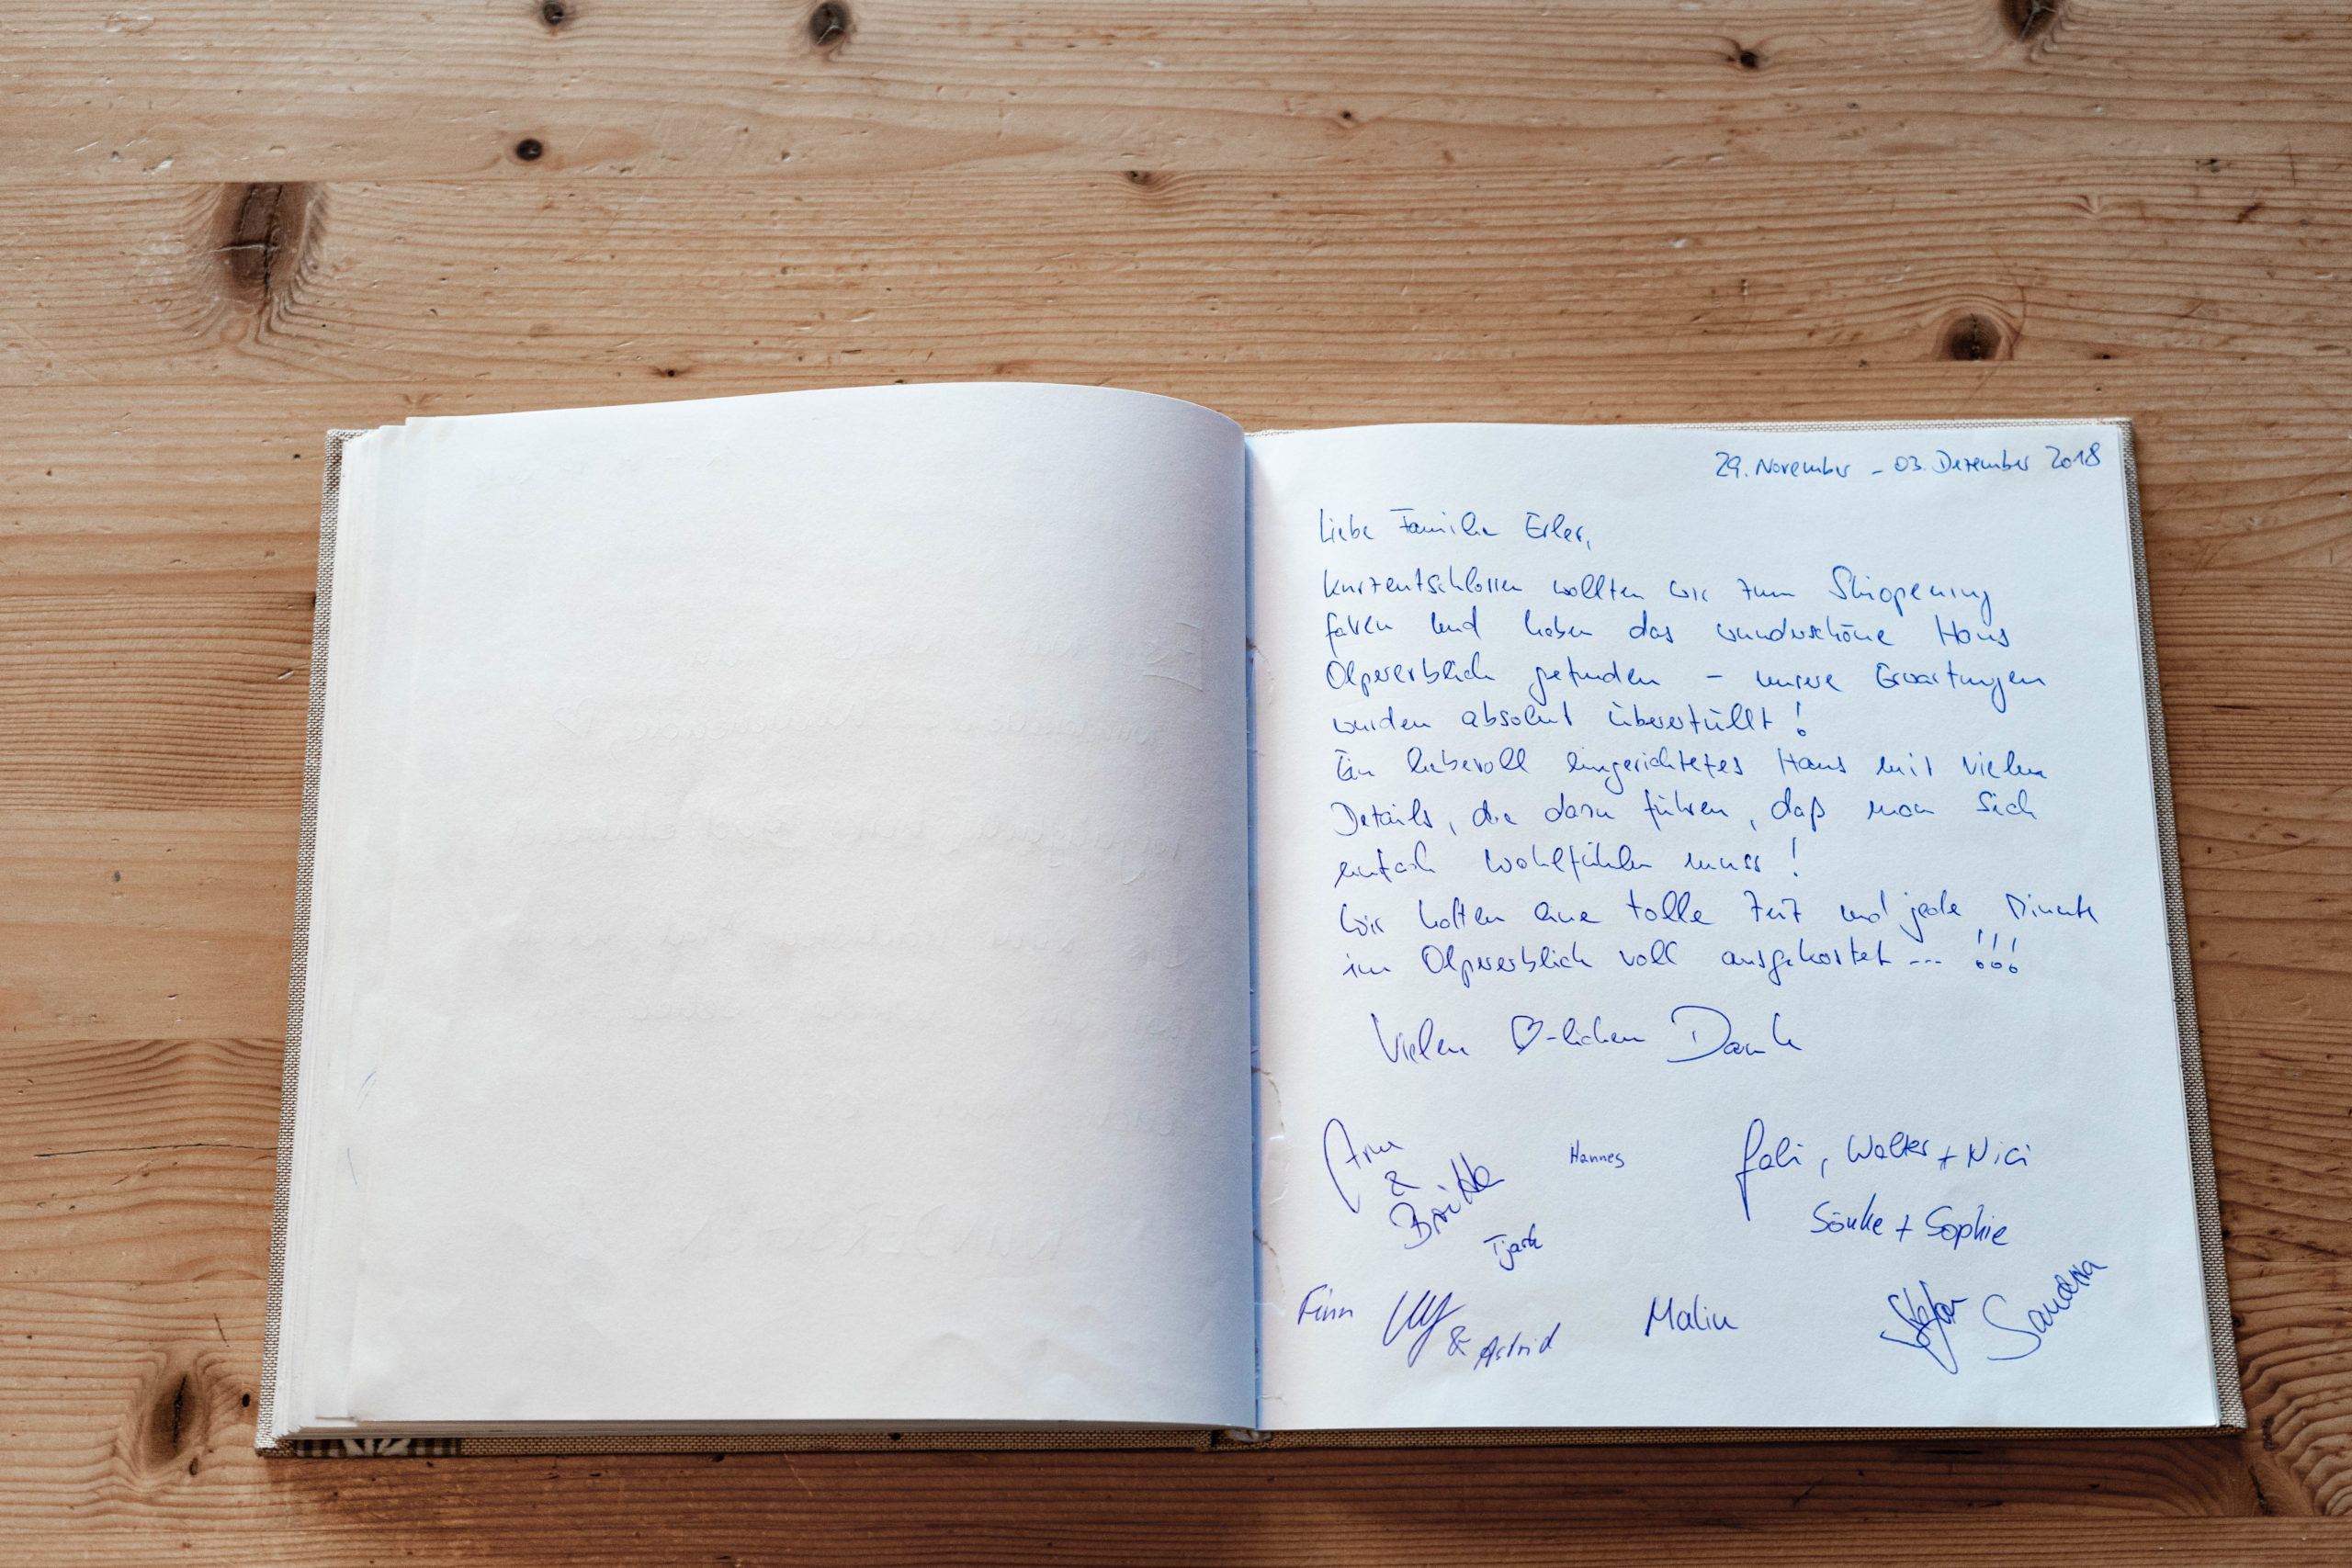 29. November - 03. Dezember 2018
Liebe Familie Erler,
kurzentschlossen wollten wir zum Skiopening
fahren und haben das wunderschöne Haus
Olpererblick gefunden - unsere Erwartungen
wurden absolut übererfüllt!
Ein liebevoll eingerichtetes Haus mit vielen
Details, die dazu führen, daß man sich
einfach wohlfühlen muss!
Wir hatten eine tolle Zeit und jede Minute
im Olpererblick voll ausgekostet --- !!!
Vielen ♡-lichen Dank
&
Britta
Hannes
Fabi, Walter + Nici
Sönke + Sophie
Tjark
Finn
& Astrid
Malin
Stefan
Sandra